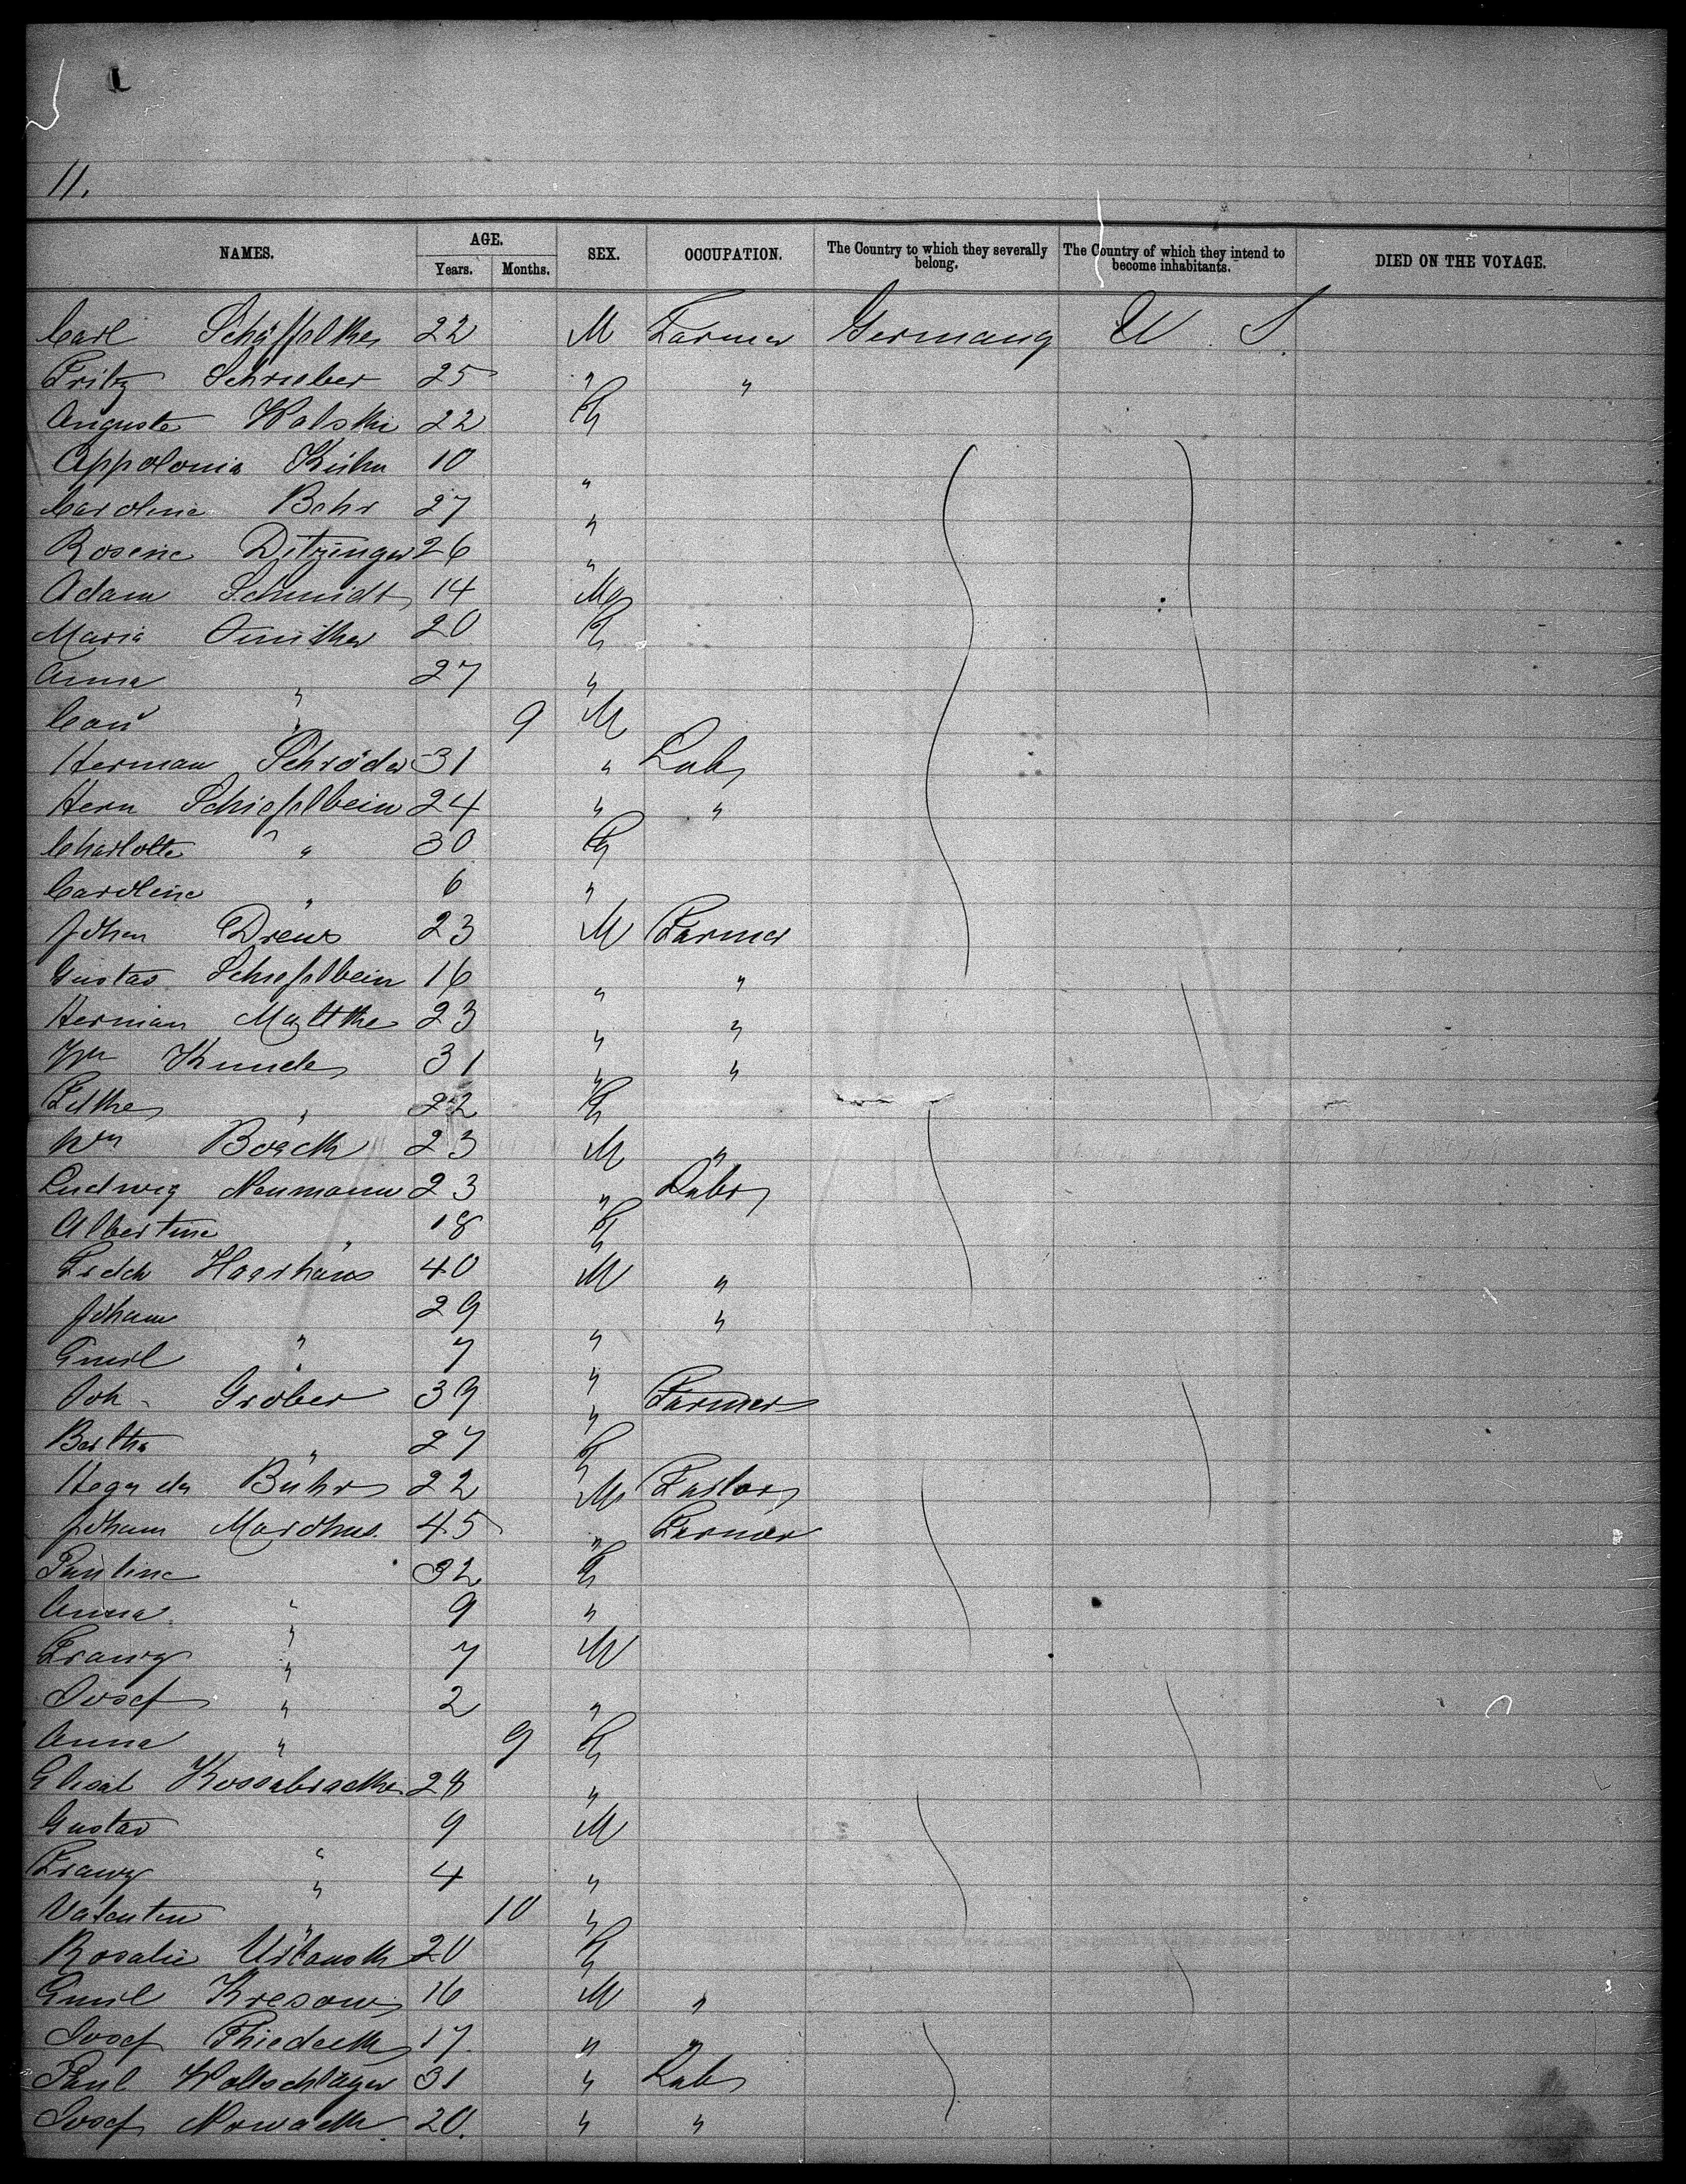 11.
NAMES. AGE. SEX. OCCUPATION. The Country to which they severally belong. The Country of which they intend to become inhabitants. DIED ON THE VOYAGE.
Years. Months.
Carl 22 M Farmer Germany U. S.
Fritz Schrieber 25 " "
Auguste Walski 22 F
Appolonia Kühn 10 "
Caroline Behr 27 "
Rosine Ditzinger 26 "
Adam Schmidt 14 M
Maria 20 F
Anna " 27 "
" 9 M
Herman Schröder 31 " Lab
Herm Schiefelbein 24 " "
Charlotte " 30 F
Caroline " 6 "
Johan Drews 23 M Farmer
Gustav Schiefelbein 16 " "
Herman 23 " "
Wm Kunde 31 " "
" 22 F
Wm 23 M "
Ludwig Neumann 23 " Labr
Albertine " 18 F
Fredch Haarhaus 40 M "
Johann " 29 " "
Emil " 7 "
Joh. Grober 39 " Farmer
Bertha " 27 F
Bühr 22 M
Johann 45 " Farmer
Pauline " 32 F
Anna " 9 "
Franz " 7 M
Josef " 2 "
Anna " 9 F
Elisab 28 "
Gustav " 9 M
Franz " 4 "
Valentin " 10 "
Rosalie 20 F
Emil Kresow 16 M "
Josef 17 " "
Paul Wollschläger 31 " Lab
Josef Nowack 20. " "